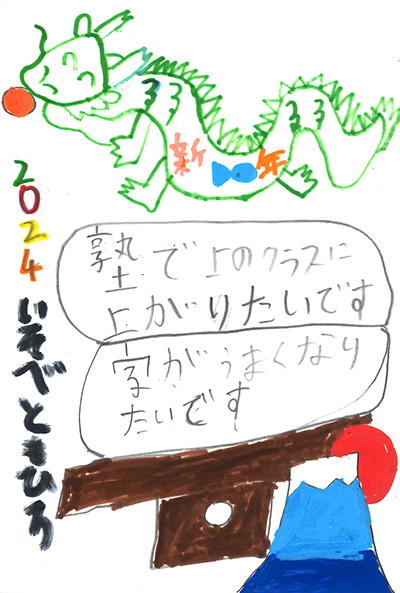 新年
2024 いそべともひろ
塾で上のクラスに
上がりたいです
字がうまくなり
たいです